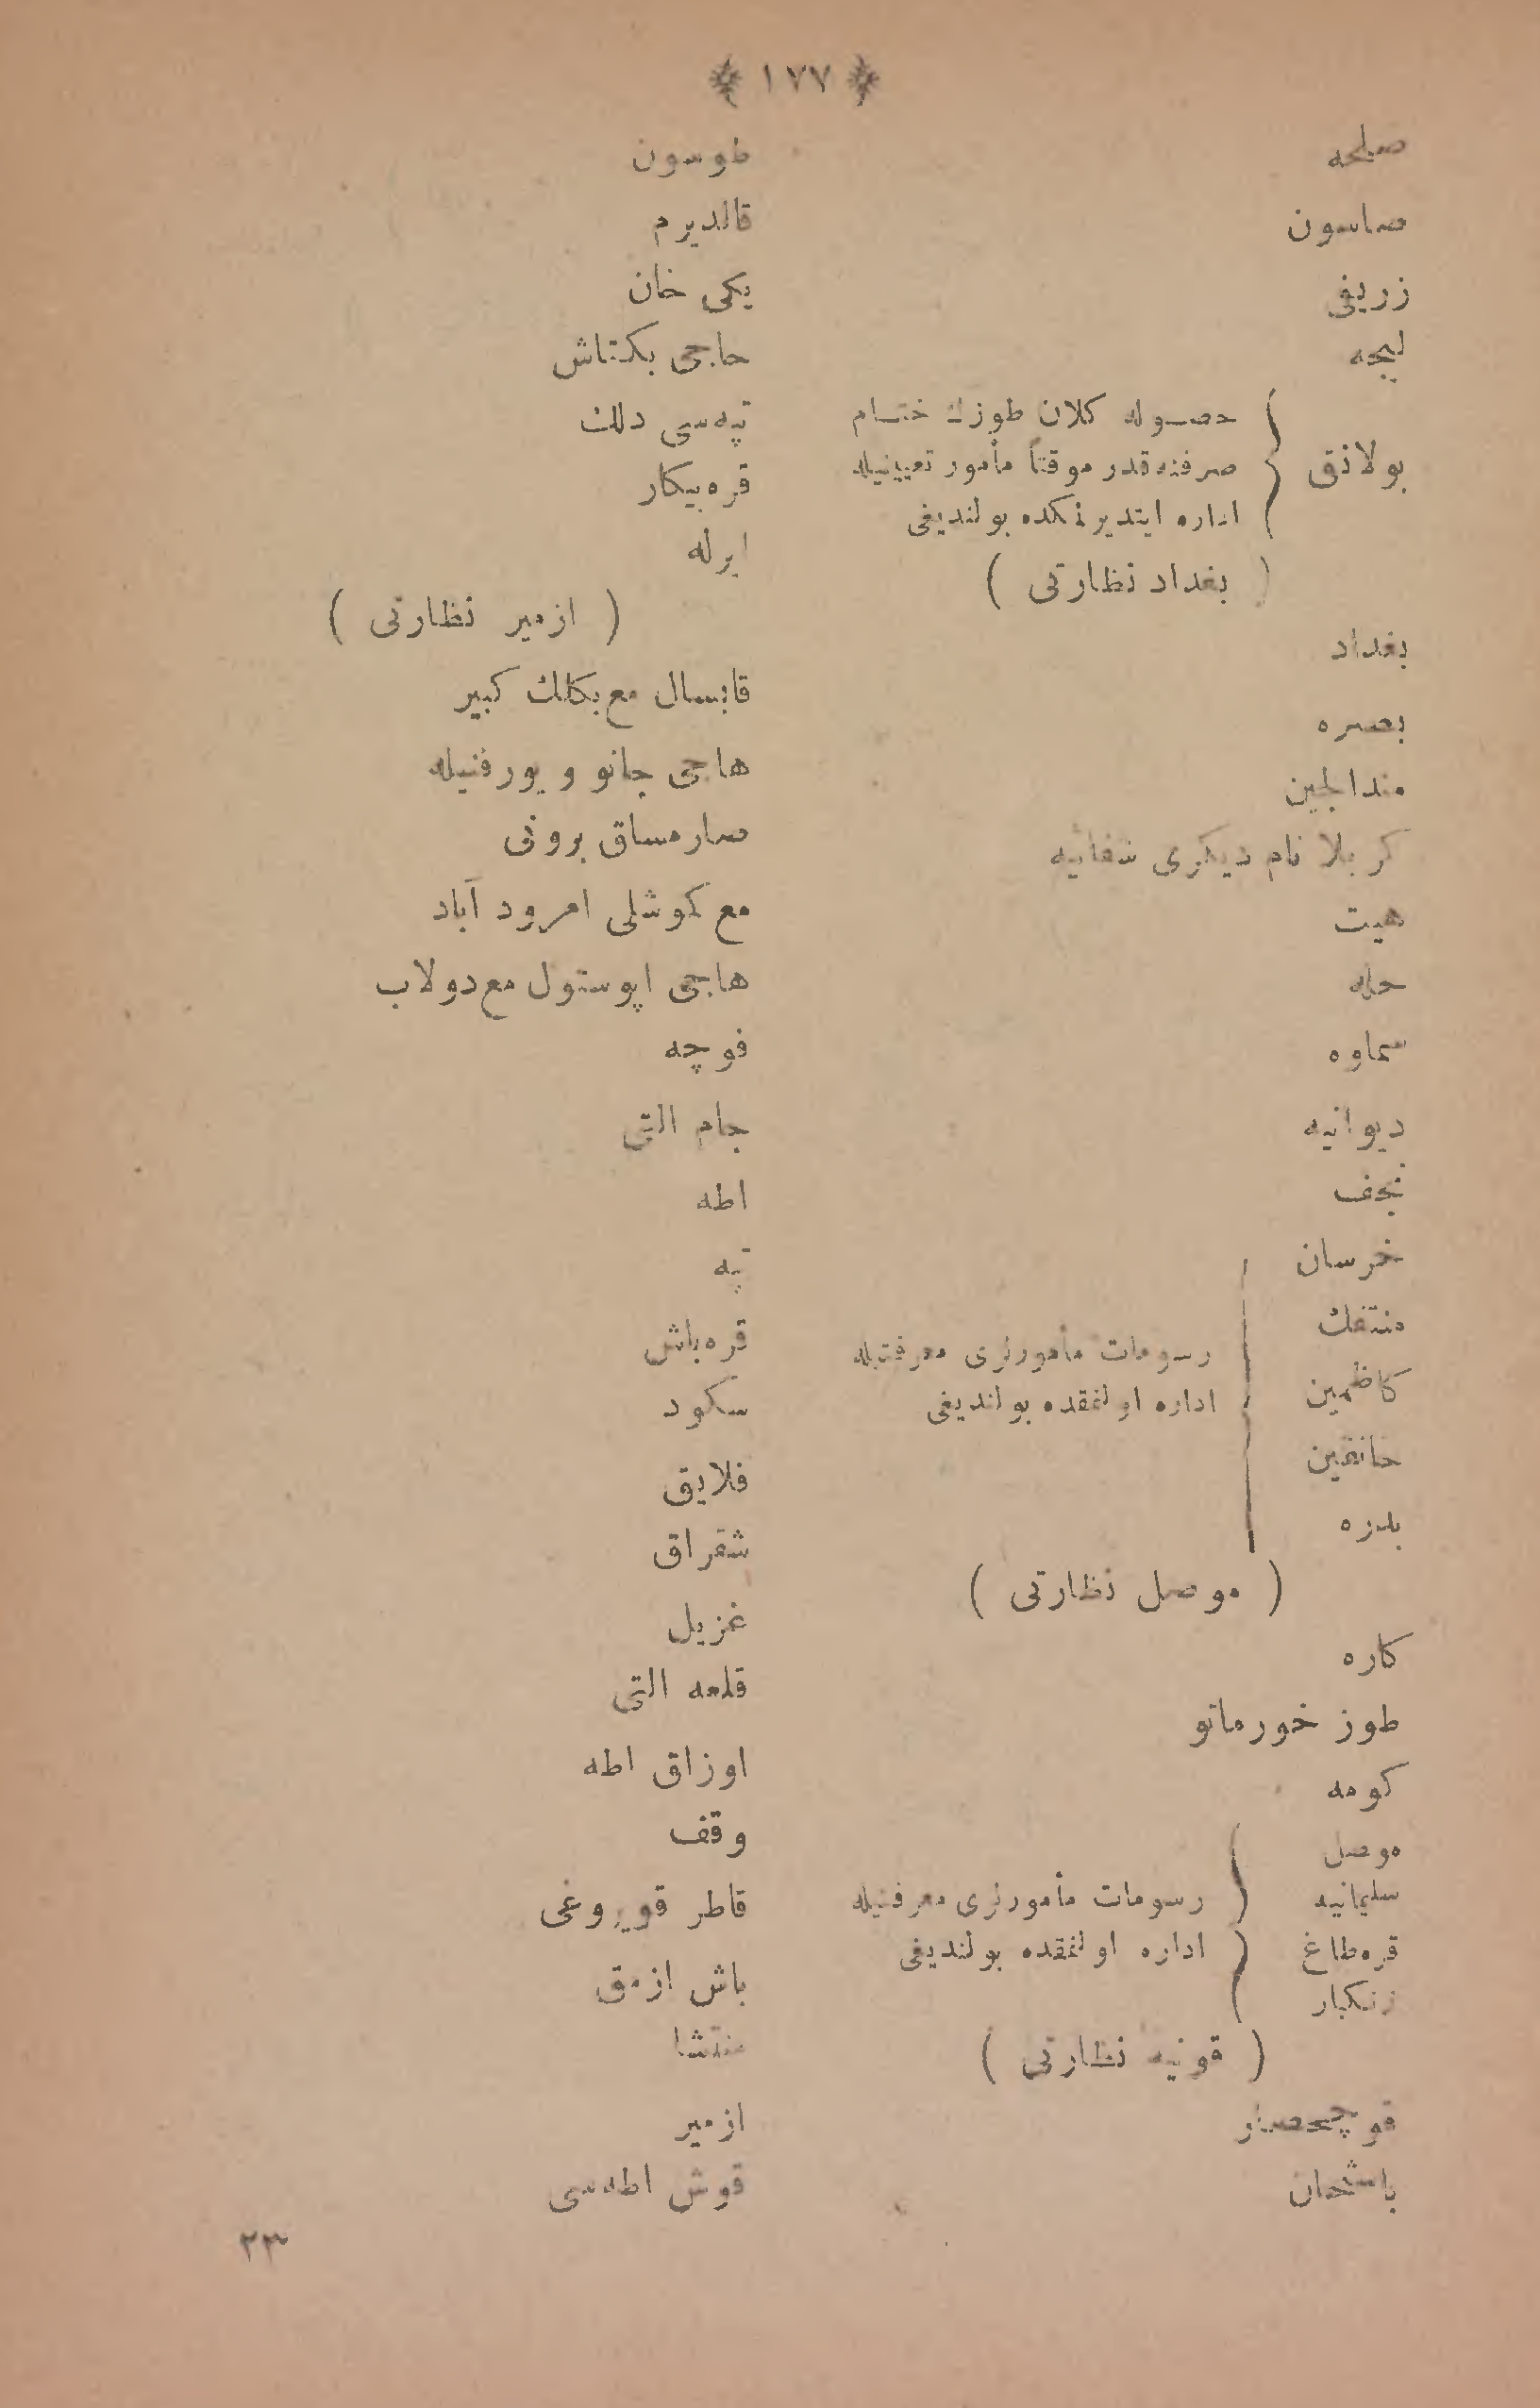 ١٧٧
صلحه
صاسون
زریفی
لیجه
بولانق
حصوله کلان طوزك ختام
صرفنه‌قدر موقتاً مأمور تعیینیله
اداره ایتدیرنمکده بولندیغی
( بغداد نظارتی )
بغداد
بصره
مندالجین
کربلا نام دیکری شفاثیه
هیت
حله
سماوه
دیوانیه
نجف
خرسان
منتفك
کاظمین
خانقین
بدره
رسومات مأمورلری معرفتیله
اداره اولنمقده بولندیغی
( موصل نظارتی )
کاره
طوز خورماتو
کومه
موصل
سلیمانیه
قره‌طاغ
زنکبار
رسومات مأمورلری معرفتیله
اداره اولنمقده بولندیغی
( قونیه نظارتی )
قوچحصار
باشخان
طوسون
قالدیرم
یکی خان
حاجی بکتاش
تپه‌سی دلك
قره‌بیکار
ایرله
( ازمیر نظارتی )
قابسال مع‌بکلك کبیر
هاجی جانو و یورفنیله
صارمساق برونی
مع کموشلی امرود آباد
هاجی اپوستول مع‌دولاب
فوچه
جام التی
اطه
تپه
قره‌باش
سکود
فلایق
شقراق
غزیل
قلعه التی
اوزاق اطه
وقف
قاطر قویروغی
باش ازمق
منتشا
ازمیر
قوش اطه‌سی
٢٣